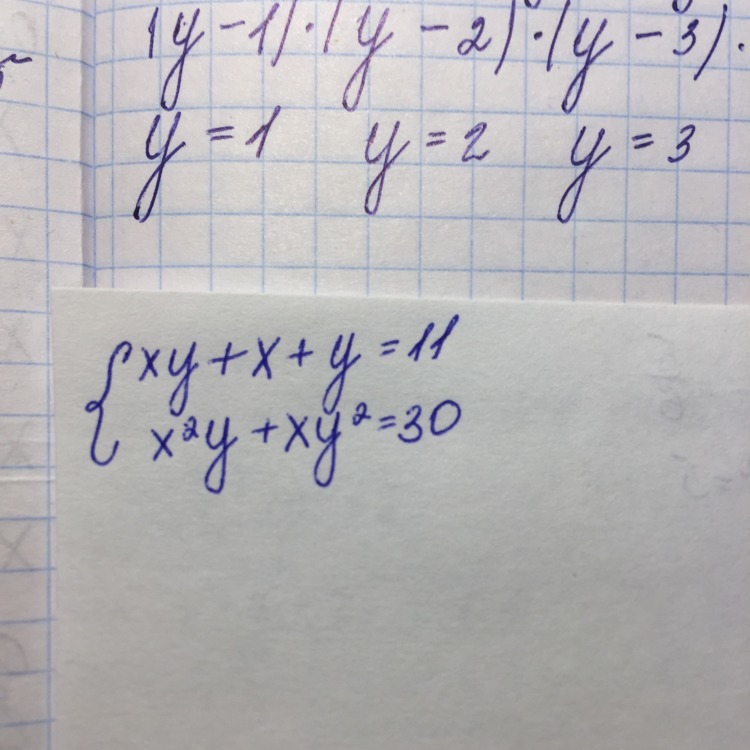 (y - 1) · (y - 2) · (y - 3) ·
y = 1 y = 2 y = 3
{ xy + x + y = 11
x²y + xy² = 30